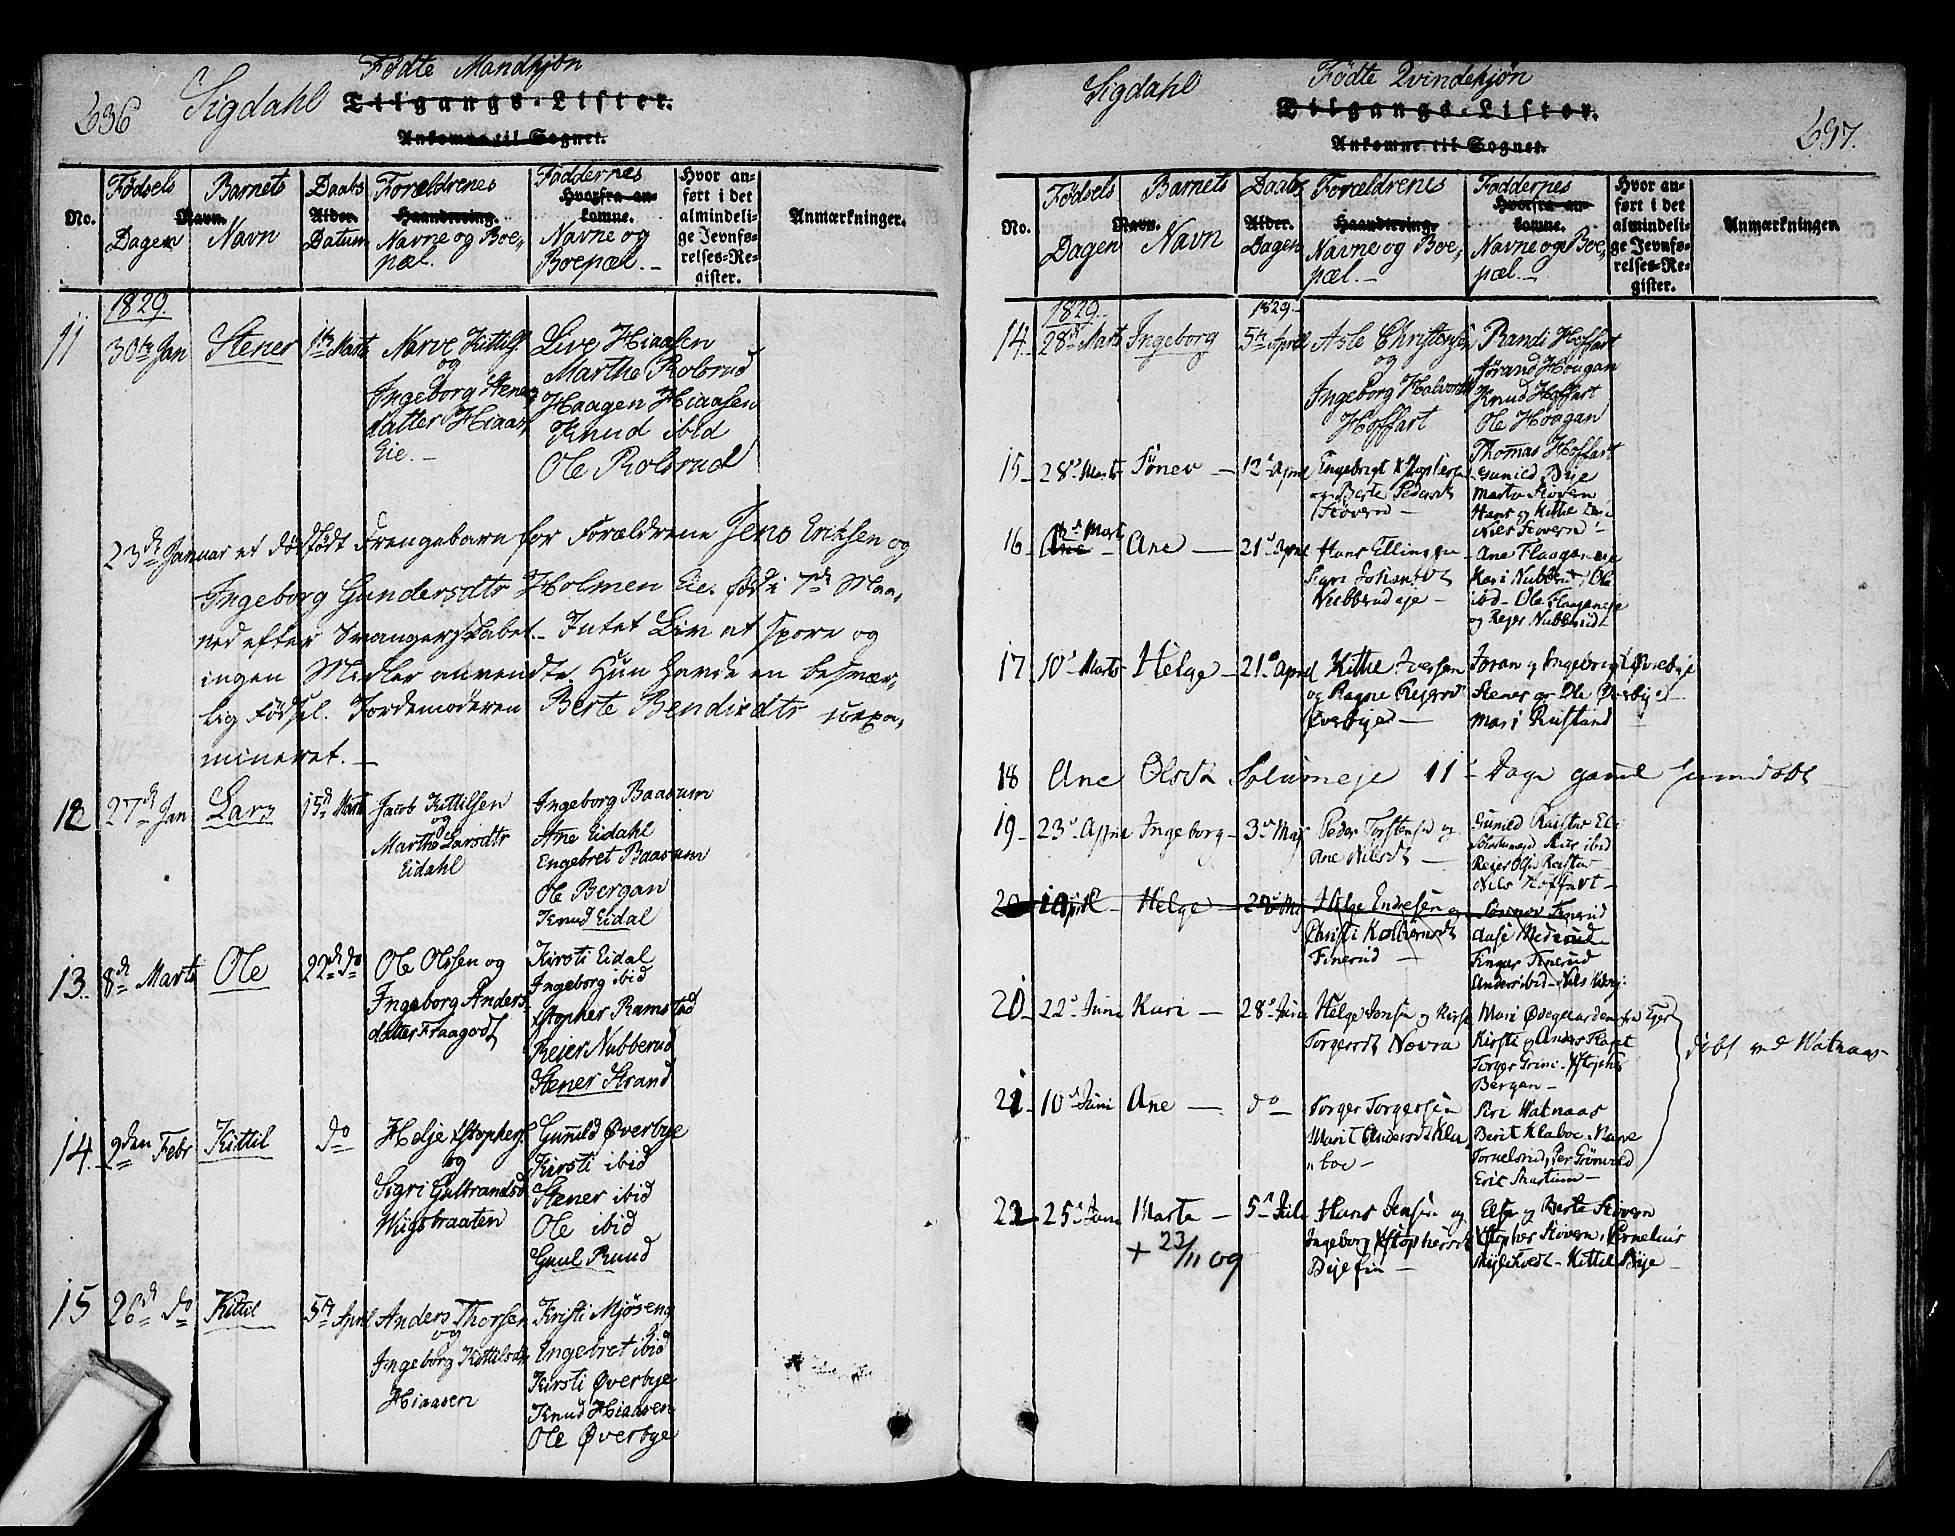 636 Sigdahl Fødte Mandkjøn
Tilgangs-Lister.
Ankomne til Sognet.
No.
Fødsels Dagen
Barnets Navn
Navn.
Daabs Datum
Alder.
Forældrenes
Haandtering.
Navne og Boe-
pæl.
Faddernes
Hvorfra an-
komne.
Navne og
Boepæl.
Hvor an-
ført i det
almindeli-
ge Jevnfø-
relses-Re-
gister.
Anmærkninger.
1829.
11 30te Jan Stener 1te Marts
Narve Kittils.
og
Ingeborg Stener
datter Hiaas.
Eie.
Live Hiaasen
Marthe Rolsrud
Haagen Hiaasen
Knud ibid
Ole Rolsrud
23de Januar et dødfødt Drengebarn for Forældrene Jens Eriksen og
Ingeborg Gundersdtr Holmen Eie. født i 7de Maa-
ned efter Svangerskabet. Intet Liv at spore og
ingen Midler anvendte. Hun havde en besvær-
lig Fødsel. Jordemoderen Berte Bendixdtr uexa-
mineret.
12 27de Jan Lars 15de Marts
Jacob Kittilsen
og
Marthe Larsdtr
Eidahl
Ingeborg Baasum
Ane Eidahl
Engebret Baasum
Ole Bergan
Knud Eidal
13. 8de Marts Ole 22de do
Ole Olssen og
Ingeborg Anders
datter Fraagodt
Kirsti Eidal
Ingeborg ibid
Xstopher Ramstad
Reier Nubberud
Stener Strand
14. 2den Febr Kittil do
Helje Xstophers.
og
Sigri Gulbrandsd.
Wigsbraaten
Gunild Øverbye
Kirsti ibid
Stener ibid
Ole ibid
Guul Ruud
15 26de do Kittil 5te April
Anders Thorsen
og
Ingeborg Kittilsdtr
Hiaasen
Kristi Mjøseng
Engebret ibid
Kirsti Øverbye
Knud Hiaasen
Ole Øverbye
Sigdahl Fødte Qvindekjøn 637.
Tilgangs-Lister.
Ankomne til Sognet.
No.
Fødsels Dagen
Barnets Navn
Navn.
Daabs Dagen
Alder.
Forældrenes
Haandtering.
Navne og Boe-
pæl.
Faddernes
Hvorfra an-
komne.
Navne og Boe-
pæl.
Hvor an-
ført i det
almindeli-
ge Jevnfø-
relses-Re-
gister.
Anmærkninger.
1829. 1829.
14. 28de Marts Ingeborg 5te April
Asle Christensen
og
Ingeborg Halvorsd
Hoffart
Randi Hoffart
Jørand Hougan
Knud Hoffart
Ole Hougan
Thomas Hoffart
15 28de Marts 12 April
Berte Pedersdt
Støvern
Gunild Bye
Marte Støvern
Hans og Kittil
Niels Støvern
16 Marts Ane 21 April
Hans Ellingsen
Sigri Johansdt
Nubberud eje
Ane Flaagan eje
Kari Nubberud, Ole
ibid - Ole Flaagan eje
og Rejer Nubberud
17 10 Marts Helge 21 April
Kittil Iversen
og Ragne Rejersdt
Øverbye
Joran og Ingebrigt Øverbye
Stener og Ole Øverbye
Mari Rustand
18 Ane Olsdt Solumeje 11 Dage gamel hjemdøbt
19 23 April Ingeborg 3 Maj
Peder Torstensen og
Ane Nilsdt
Gunild Rustad
ibid
Rejer Olsen Rustad
Nils Hoffart
20 April Helge Maj
Helge Endresen og
Christi Kolbiørnsdt
Finerud
Finerud
Aase Mederud
Finerud
Anders ibid - Nils
20 22 Juni Kari 28 Juni
Helge Jonsen og Kirsti
Torgersdt Nævra
Mari Ødegaarden fra Eger
Kirsti og Anders Kaaet
Torger Grini - Xstopher
Bergan
døbt ved Watnaas
21 10 Juni Ane do
Torger Torgersen
Marit Andersdt Kla
boe
Siri Watnaas
Berit Klaboe
Tornelsrud, Per Grønvold
Eric Skartum
22 25 Juni Marta 5 Juli
+ 23/11 09
Hans Jensen og
Ingeborg Xstophersdt
Bye
Else og Berte Støvern
Xstopher Støvern, Cornelius
Kittil Bye